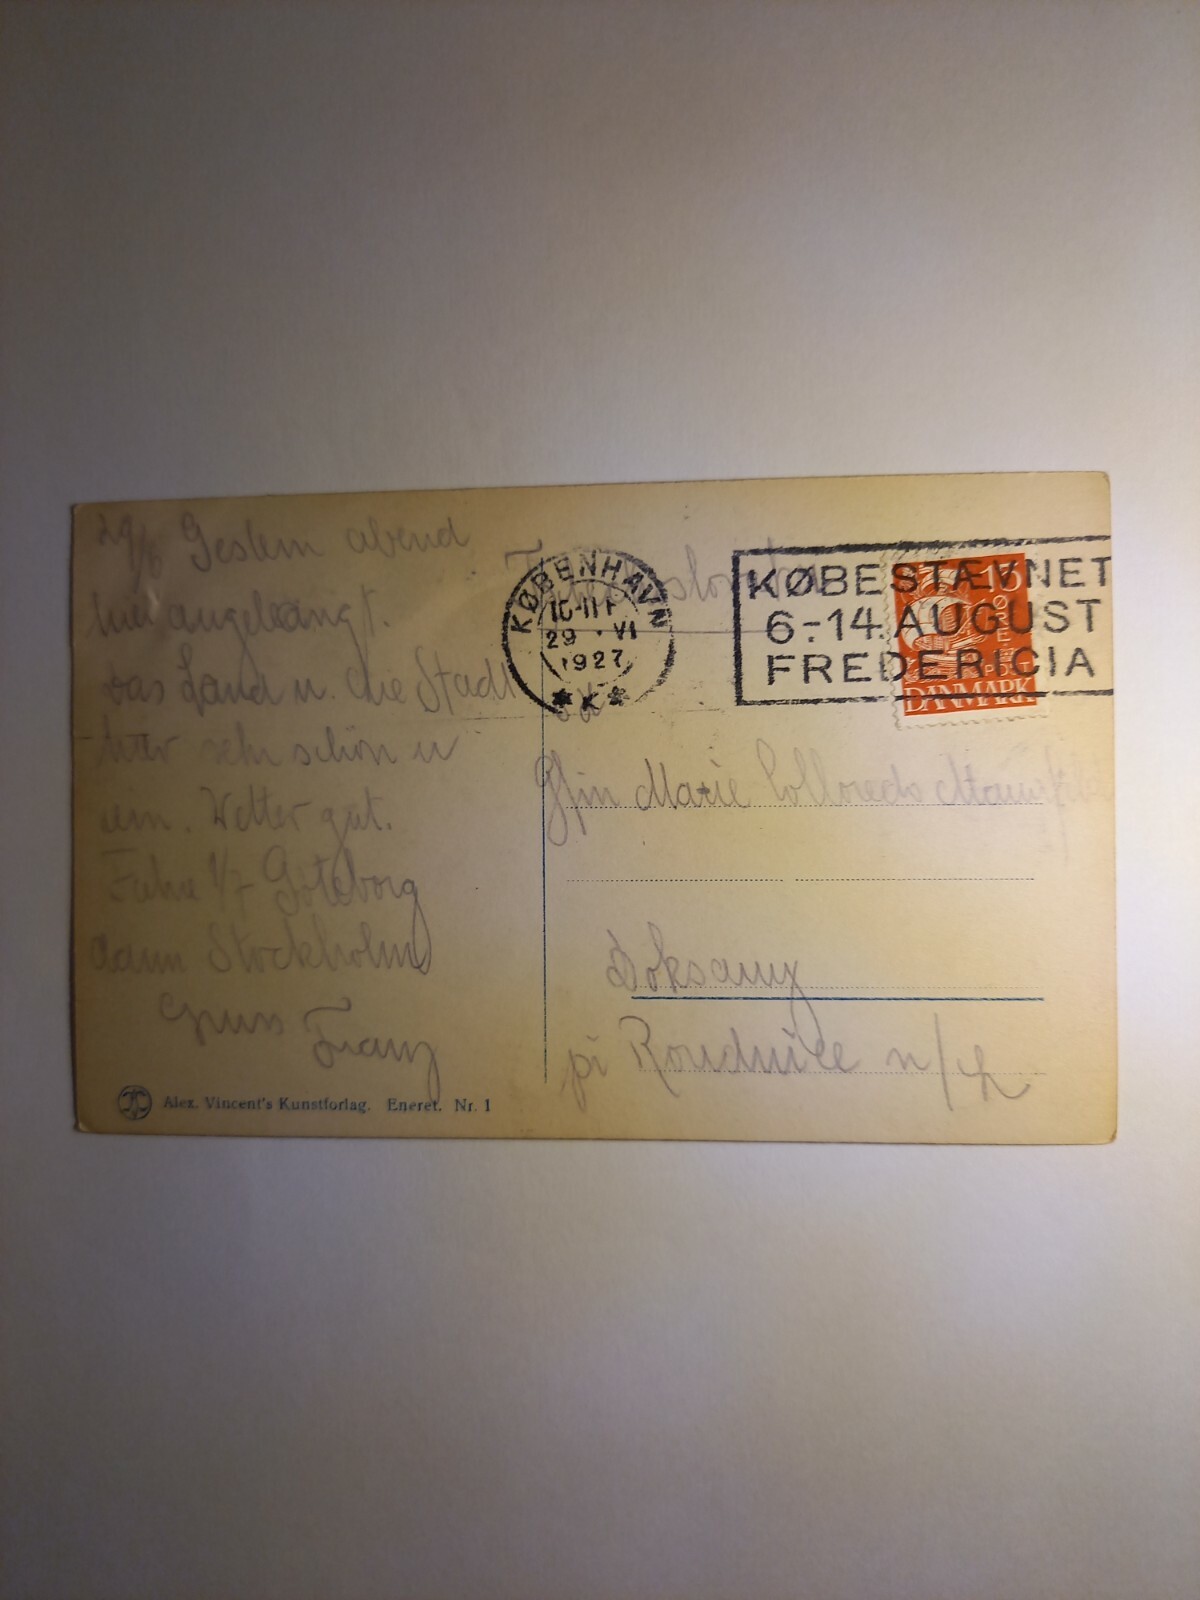 29/6 Gestern abend
hier angelangt.
das Land u. die Stadt
hier sehr schön u
Wetter gut.
Fahre 1/7 Göteborg
dann Stockholm
Gruss
Franz
Alex. Vincent's Kunstforlag. Eneret. Nr. 1
KØBENHAVN
29 VI
1927
* K *
KØBESTÆVNET
6-14. AUGUST
FREDERICIA
15
ØRE
DANMARK
Gfin Marie Colloredo Mannsfeld
Doksany
pi Roudnice n/L